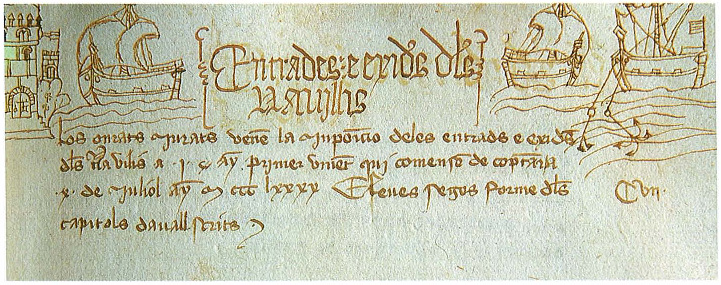 Entrades: e exides dls
Nauilis
Los onrats Jurats venē la Jnposicio deles entrads e exids
dls nauilis a . j . ay primer vinēt qui comensa de comptar a
x . de Juliol ay M ccc lxxxx E fenes segos forme dls
C vii .
capitols dauall scrits .